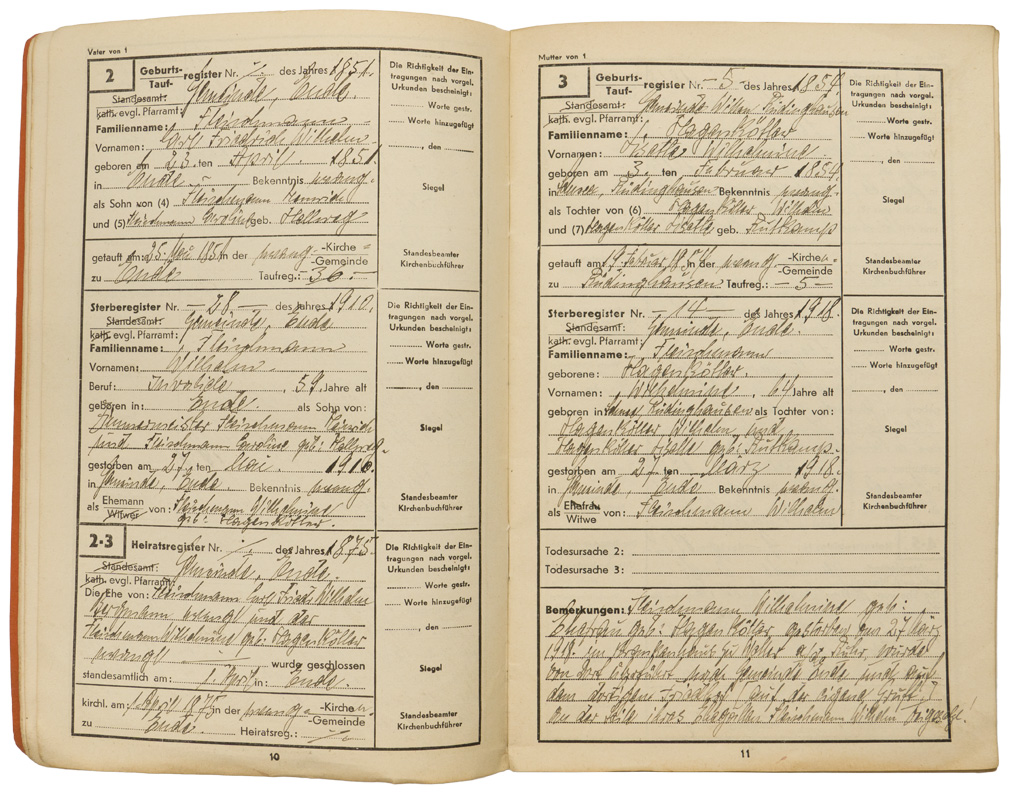 Vater von 1
2 Geburts-
Tauf- register Nr. ·/. des Jahres 1851.
Standesamt: Gemeinde, Ende.
kath. evgl. Pfarramt:
Familienname: Fleischmann
Vornamen: Carl Friedrich Wilhelm
geboren am 23. ten April. 1851.
in Ende. Bekenntnis evang.
als Sohn von (4) Fleischmann Heinrich
und (5) Fleischmann Caroline geb. Hallweg
getauft am: 25. Mai 1851. in der evang. -Kirche
-Gemeinde
zu Ende Taufreg.: 36.-
Die Richtigkeit der Ein-
tragungen nach vorgel.
Urkunden bescheinigt:
Worte gestr.
Worte hinzugefügt
, den
Siegel
Standesbeamter
Kirchenbuchführer
Sterberegister Nr. - 28 - des Jahres 1910.
Standesamt: Gemeinde, Ende
kath. evgl. Pfarramt:
Familienname: Fleischmann
Vornamen: Wilhelm.
Beruf: Invalide, 59 Jahre alt
geboren in: Ende. als Sohn von:
Fleischmann Heinrich
und Fleischmann Caroline geb. Hallweg
gestorben am 27. ten Mai. 1910.
in Gemeinde, Ende Bekenntnis evang.
als Ehemann
Witwer von: Fleischmann Wilhelmine
geb. Hagenkötter.
Die Richtigkeit der Ein-
tragungen nach vorgel.
Urkunden bescheinigt:
Worte gestr.
Worte hinzugefügt
, den
Siegel
Standesbeamter
Kirchenbuchführer
2·3 Heiratsregister Nr. ·/. des Jahres 1875.
Standesamt: Gemeinde, Ende.
kath. evgl. Pfarramt:
Die Ehe von: Fleischmann Carl Friedr. Wilhelm
Bergmann evangl und der
Fleischmann Wilhelmine geb: Hagenkötter
evangl wurde geschlossen
standesamtlich am: 1. April in: Ende.
kirchl. am 1. April 1875 in der evang. -Kirchen
-Gemeinde
zu Ende. Heiratsreg.: ·/.
Die Richtigkeit der Ein-
tragungen nach vorgel.
Urkunden bescheinigt:
Worte gestr.
Worte hinzugefügt
, den
Siegel
Standesbeamter
Kirchenbuchführer
10
Mutter von 1
3 Geburts-
Tauf- register Nr. - 5 - des Jahres 1854.
Standesamt: Gemeinde Witten Rüdinghausen
kath. evgl. Pfarramt:
Familienname: Hagenkötter
Vornamen: Wilhelmine
geboren am 3. ten Februar 1854.
in Rüdinghausen Bekenntnis evang.
als Tochter von (6) Hagenkötter Wilhelm
und (7) Hagenkötter geb. Rüttkamp
getauft am 9. Februar 1854 in der evang. -Kirchen
-Gemeinde
zu Rüdinghausen Taufreg.: - 5 -
Die Richtigkeit der Ein-
tragungen nach vorgel.
Urkunden bescheinigt:
Worte gestr.
Worte hinzugefügt
, den
Siegel
Standesbeamter
Kirchenbuchführer
Sterberegister Nr. - 14 - des Jahres 1918.
Standesamt: Gemeinde, Ende.
kath. evgl. Pfarramt:
Familienname: Fleischmann
geborene: Hagenkötter.
Vornamen: Wilhelmine, 64 Jahre alt
geboren in Rüdinghausen als Tochter von:
Hagenkötter Wilhelm und
Hagenkötter geb. Rüttkamp.
gestorben am 27. ten März 1918.
in Gemeinde, Ende Bekenntnis evang.
als Ehefrau
Witwe von: Fleischmann Wilhelm
Die Richtigkeit der Ein-
tragungen nach vorgel.
Urkunden bescheinigt:
Worte gestr.
Worte hinzugefügt
, den
Siegel
Standesbeamter
Kirchenbuchführer
Todesursache 2:
Todesursache 3:
Bemerkungen: Fleischmann Wilhelmine geb:
Ehefrau geb: Hagenkötter, gestorben am 27 März
1918. im Krankenhaus zu Wetter a. d. Ruhr, wurde
von dort überführt nach Gemeinde Ende und auf
dem dortigen Friedhof auf der eigene Gruft
an der Seite ihres Ehegatten Fleischmann Wilhelm beigesetzt!
11